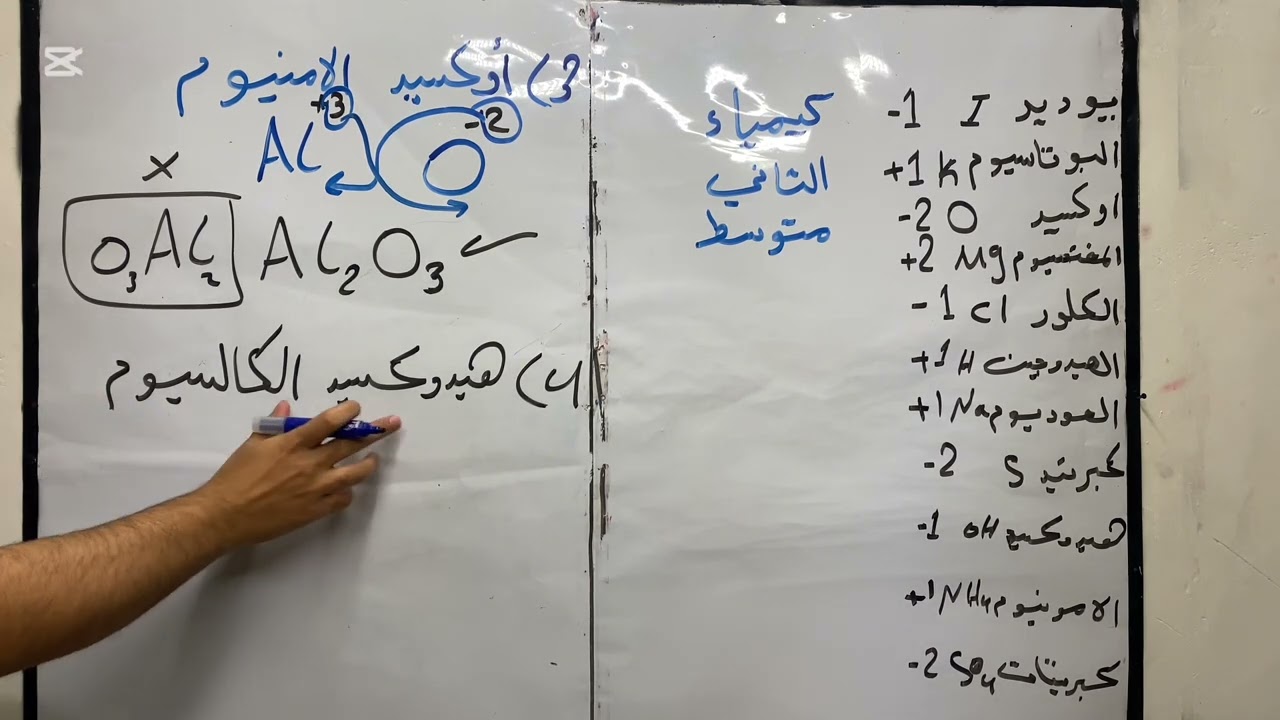 3) أوكسيد الامنيوم
+3 -2
Al O
×
O₃Al₂ Al₂O₃ ✓
4) هيدروكسيد الكالسيوم
كيمياء
الثاني
متوسط
يوديد I -1
البوتاسيوم K +1
اوكسيد O -2
المغنسيوم Mg +2
الكلور cl -1
الهيدروجين H +1
الصوديوم Na +1
كبريتيد S -2
هيدروكسيد OH -1
الامونيوم NH₄ +1
كبريتات SO₄ -2